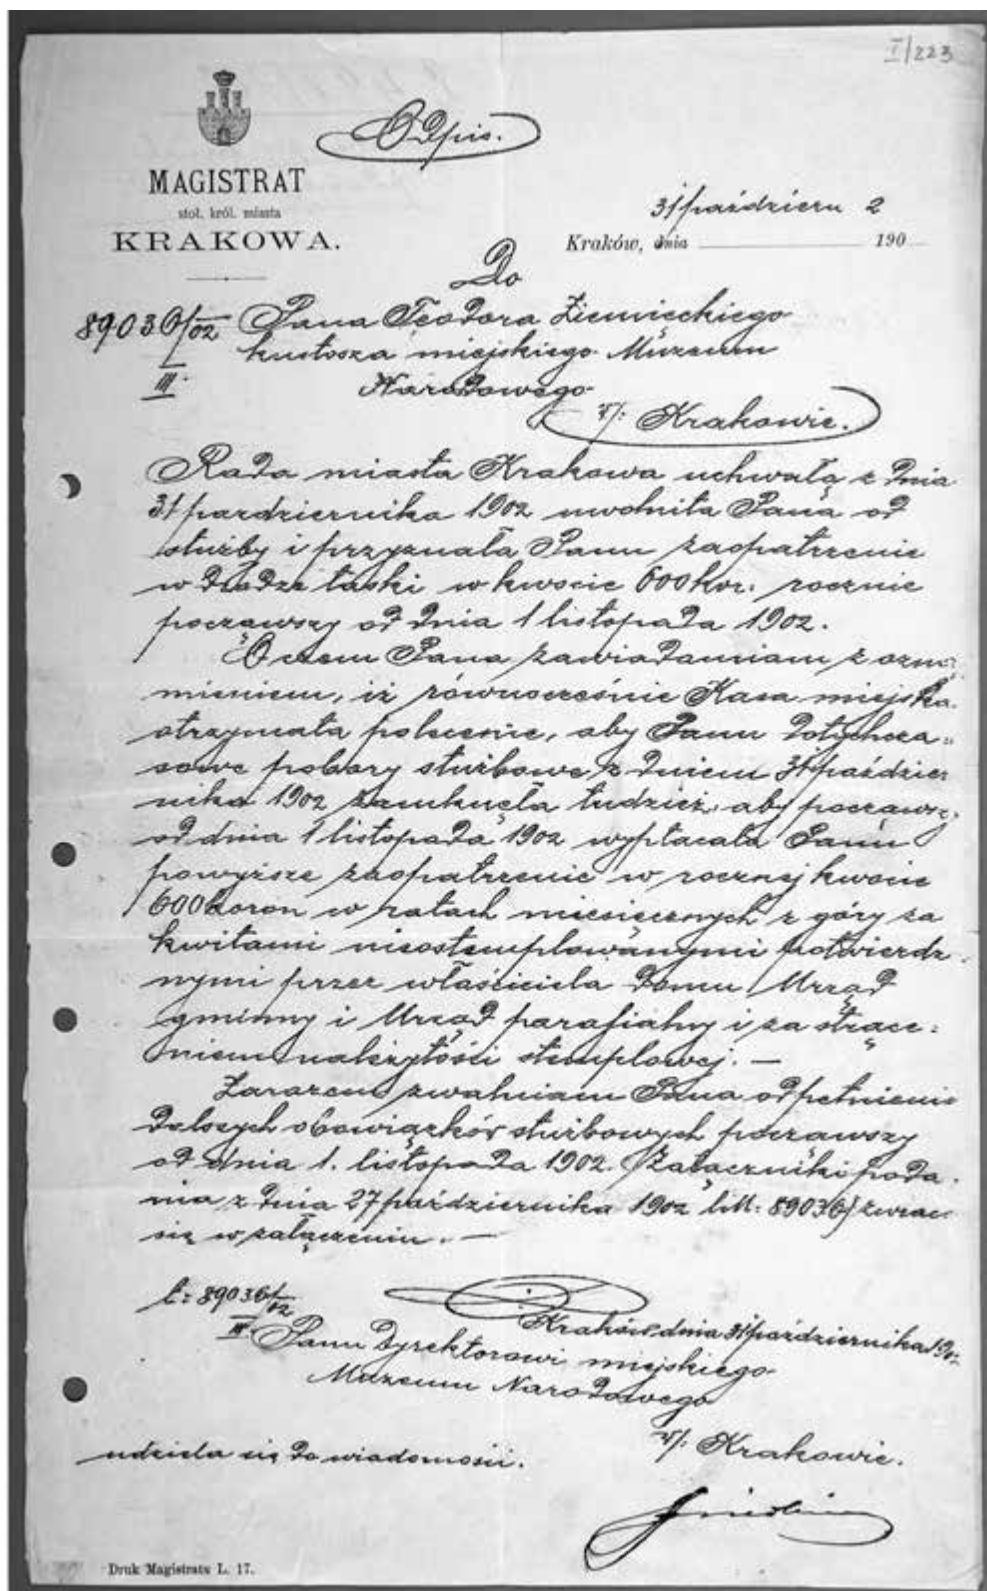 I/223
Odpis.
MAGISTRAT
stoł. król. miasta
KRAKOWA.
31 październ 2
Kraków, dnia 190
Do
89036/02 Pana Teodora Ziemięckiego
III. kustosza miejskiego Muzeum
Narodowego
w/: Krakowie.
Rada miasta Krakowa uchwałą z dnia
31 pazdziernika 1902 uwolniła Pana od
służby i przyznała Panu zaopatrzenie
w drodze łaski w kwocie 600 kor. rocznie
począwszy od dnia 1 listopada 1902.
O czem Pana zawiadamiam z ozna„
mieniem, iż równocześnie Kasa miejska
otrzymała polecenie, aby Panu dotychcza„
sowe pobory służbowe z dniem 31 paździer
nika 1902 zamknęła tudzież, aby począwszy
od dnia 1 listopada 1902 wypłacała Panu
powyższe zaopatrzenie w rocznej kwocie
600 koron w ratach miesięcznych z góry za
kwitami nieostemplowanymi potwierdz„
nymi przez właściciela domu Urząd
gminny i Urząd parafialny i za strące„
niem należytości stemplowej. —
Zarazem zwalniam Pana od pełnienia
dalszych obowiązków służbowych począwszy
od dnia 1. listopada 1902. Załączniki poda„
nia z dnia 27 października 1902 l.M: 89036/ zwrac
się w załączeniu. —
L: 89036/02
III.
Kraków dnia 31 października 1902
Panu Dyrektorowi miejskiego
Muzeum Narodowego
w/: Krakowie.
udziela się do wiadomości.
Druk Magistratu L. 17.